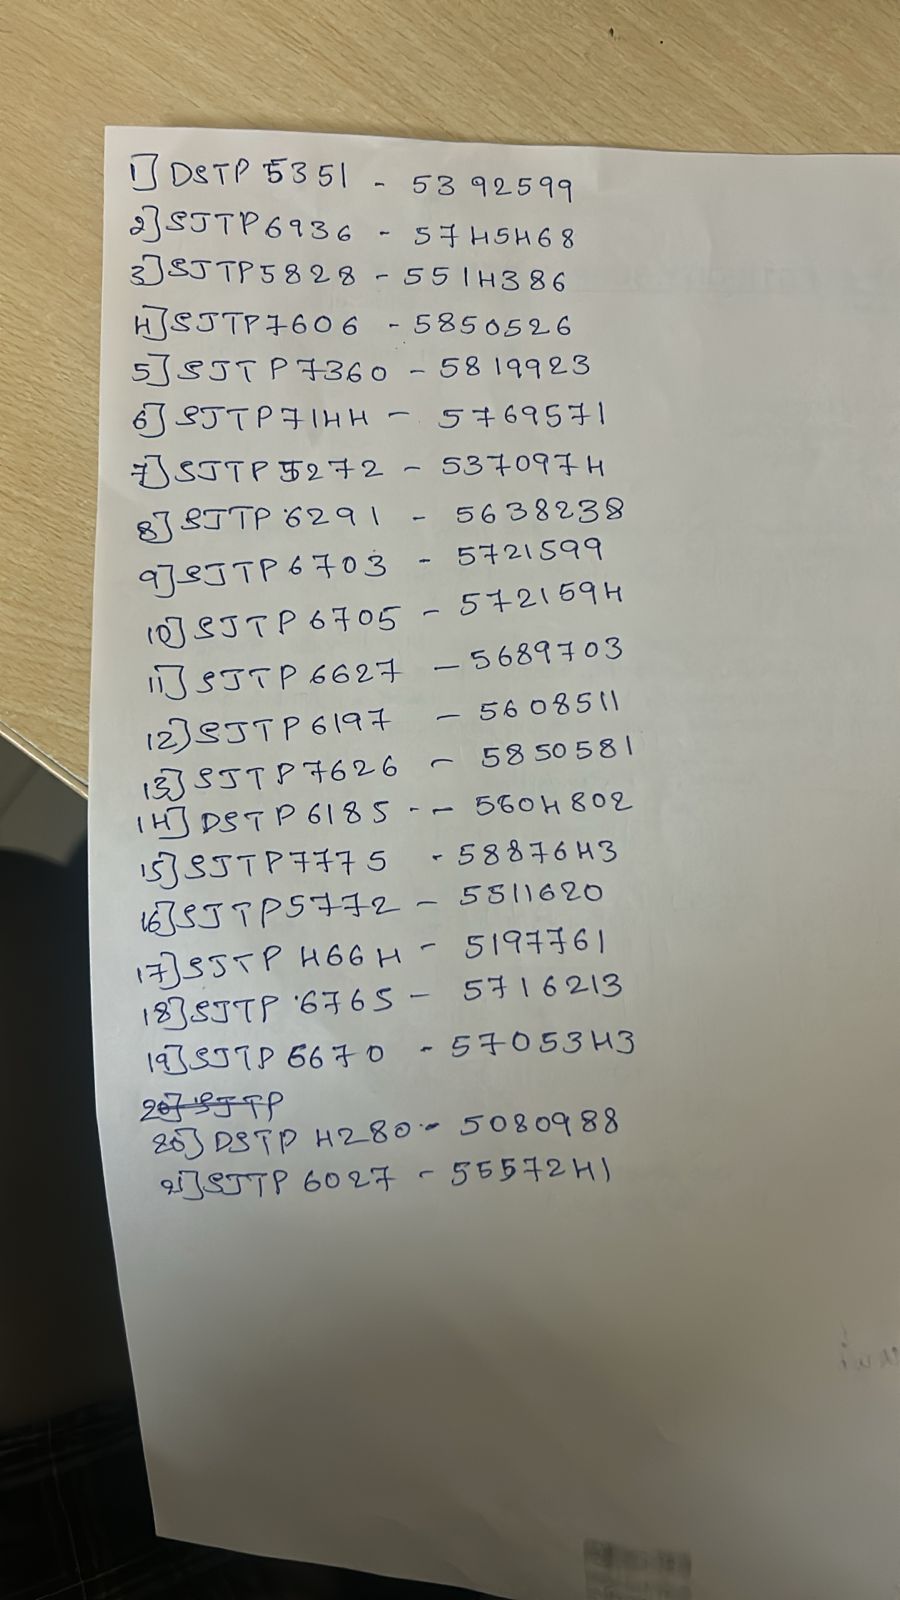 1] DSTP 5351 - 5392599
2] SJTP6936 - 5745468
3] SJTP5828 - 5514386
4] SJTP7606 - 5850526
5] SJTP7360 - 5819923
6] SJTP7144 - 5769571
7] SJTP5272 - 5370974
8] SJTP 6291 - 5638238
9] SJTP6703 - 5721599
10] SJTP 6705 - 5721594
11] SJTP 6627 - 5689703
12] SJTP6197 - 5608511
13] SJTP7626 - 5850581
14] DSTP6185 - 5604802
15] SJTP7775 - 5887643
16] SJTP5772 - 5511620
17] SJTP 4664 - 5197761
18] SJTP 6765 - 5716213
19] SJTP 6670 - 5705343
20] SJTP
20] DSTP 4280 - 5080988
21] SJTP 6027 - 5557241